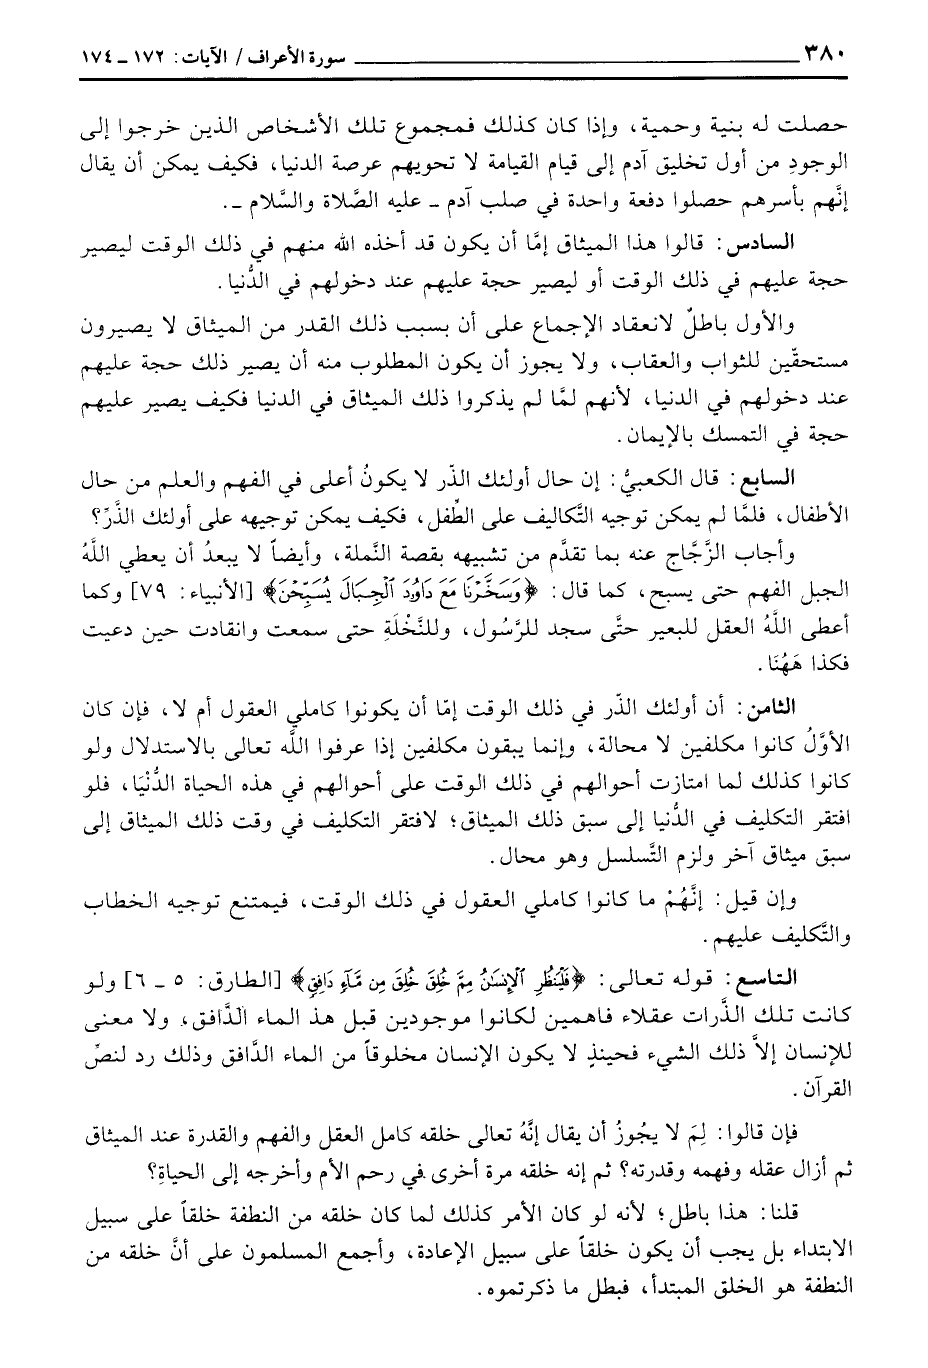 ٣٨٠ ــــــــــ سورة الأعراف / الآيات: ١٧٢ ـ ١٧٤
حصلت له بنية وحمية، وإذا كان كذلك فمجموع تلك الأشخاص الذين خرجوا إلى
الوجودِ من أول تخليق آدم إلى قيام القيامة لا تحويهم عرصة الدنيا، فكيف يمكن أن يقال
إنَّهم بأسرهم حصلوا دفعة واحدة في صلب آدم ـ عليه الصَّلاة والسَّلام ـ.
السادس: قالوا هذا الميثاق إمَّا أن يكون قد أخذه الله منهم في ذلك الوقت ليصير
حجة عليهم في ذلك الوقت أو ليصير حجة عليهم عند دخولهم في الدُّنيا.
والأول باطلٌ لانعقاد الإجماع على أن بسبب ذلك القدر من الميثاق لا يصيرون
مستحقّين للثواب والعقاب، ولا يجوز أن يكون المطلوب منه أن يصير ذلك حجة عليهم
عند دخولهم في الدنيا، لأنهم لمَّا لم يذكروا ذلك الميثاق في الدنيا فكيف يصير عليهم
حجة في التمسك بالإيمان.
السابع: قال الكعبيُّ: إن حال أولئك الذّر لا يكونُ أعلى في الفهم والعلم من حال
الأطفال، فلمَّا لم يمكن توجيه التَّكاليف على الطِّفل، فكيف يمكن توجيهه على أولئك الذَّرِّ؟
وأجاب الزَّجَّاج عنه بما تقدَّم من تشبيهه بقصة النَّملة، وأيضاً لا يبعدُ أن يعطي اللَّهُ
الجبل الفهم حتى يسبح، كما قال: ﴿وَسَخَّرْنَا مَعَ دَاوُدَ ٱلْجِبَالَ يُسَبِّحْنَ﴾ [الأنبياء: ٧٩] وكما
أعطى اللَّهُ العقل للبعير حتَّى سجد للرَّسُول، وللنَّخْلَةِ حتى سمعت وانقادت حين دعيت
فكذا هَهُنَا.
الثامن: أن أولئك الذّر في ذلك الوقت إمّا أن يكونوا كاملي العقول أم لا، فإن كان
الأوَّلُ كانوا مكلفين لا محالة، وإنما يبقون مكلفين إذا عرفوا اللَّه تعالى بالاستدلال ولو
كانوا كذلك لما امتازت أحوالهم في ذلك الوقت على أحوالهم في هذه الحياة الدُّنْيَا، فلو
افتقر التكليف في الدُّنيا إلى سبق ذلك الميثاق؛ لافتقر التكليف في وقت ذلك الميثاق إلى
سبق ميثاق آخر ولزم التَّسلسل وهو محال.
وإن قيل: إنَّهُمْ ما كانوا كاملي العقول في ذلك الوقت، فيمتنع توجيه الخطاب
والتَّكليف عليهم.
التاسع: قوله تعالى: ﴿فَلْيَنظُرِ ٱلْإِنسَٰنُ مِمَّ خُلِقَ خُلِقَ مِن مَّآءٍ دَافِقٍ﴾ [الطارق: ٥ ـ ٦] ولو
كانت تلك الذَّرات عقلاء فاهمين لكانوا موجودين قبل هذ الماء الدَّافق، ولا معنى
للإنسان إلاَّ ذلك الشيء فحينئذٍ لا يكون الإنسان مخلوقاً من الماء الدَّافق وذلك رد لنصِّ
القرآن.
فإن قالوا: لِمَ لا يجُوزُ أن يقال إنَّهُ تعالى خلقه كامل العقل والفهم والقدرة عند الميثاق
ثم أزال عقله وفهمه وقدرته؟ ثم إنه خلقه مرة أخرى في رحم الأم وأخرجه إلى الحياةِ؟
قلنا: هذا باطل؛ لأنه لو كان الأمر كذلك لما كان خلقه من النطفة خلقاً على سبيل
الابتداء بل يجب أن يكون خلقاً على سبيل الإعادة، وأجمع المسلمون على أنَّ خلقه من
النطفة هو الخلق المبتدأ، فبطل ما ذكرتموه.